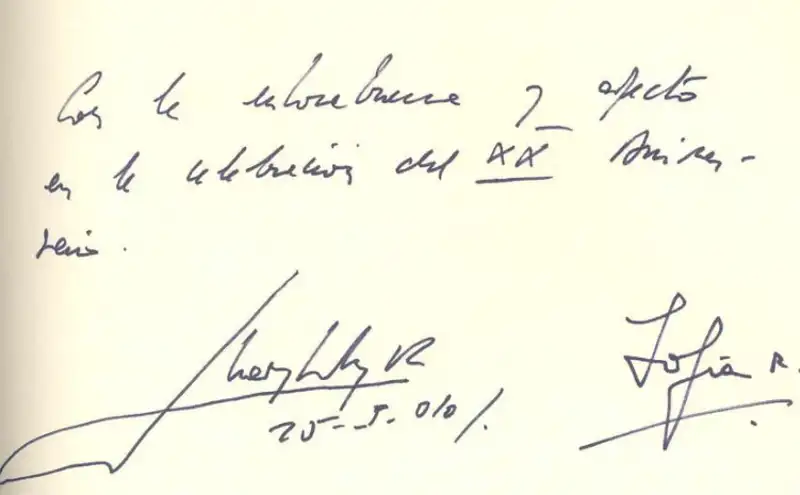 Con la enhorabuena y afecto
en la celebración del XX Aniver-
sario.
Juan Carlos R
Sofía R.
25-5-010/.